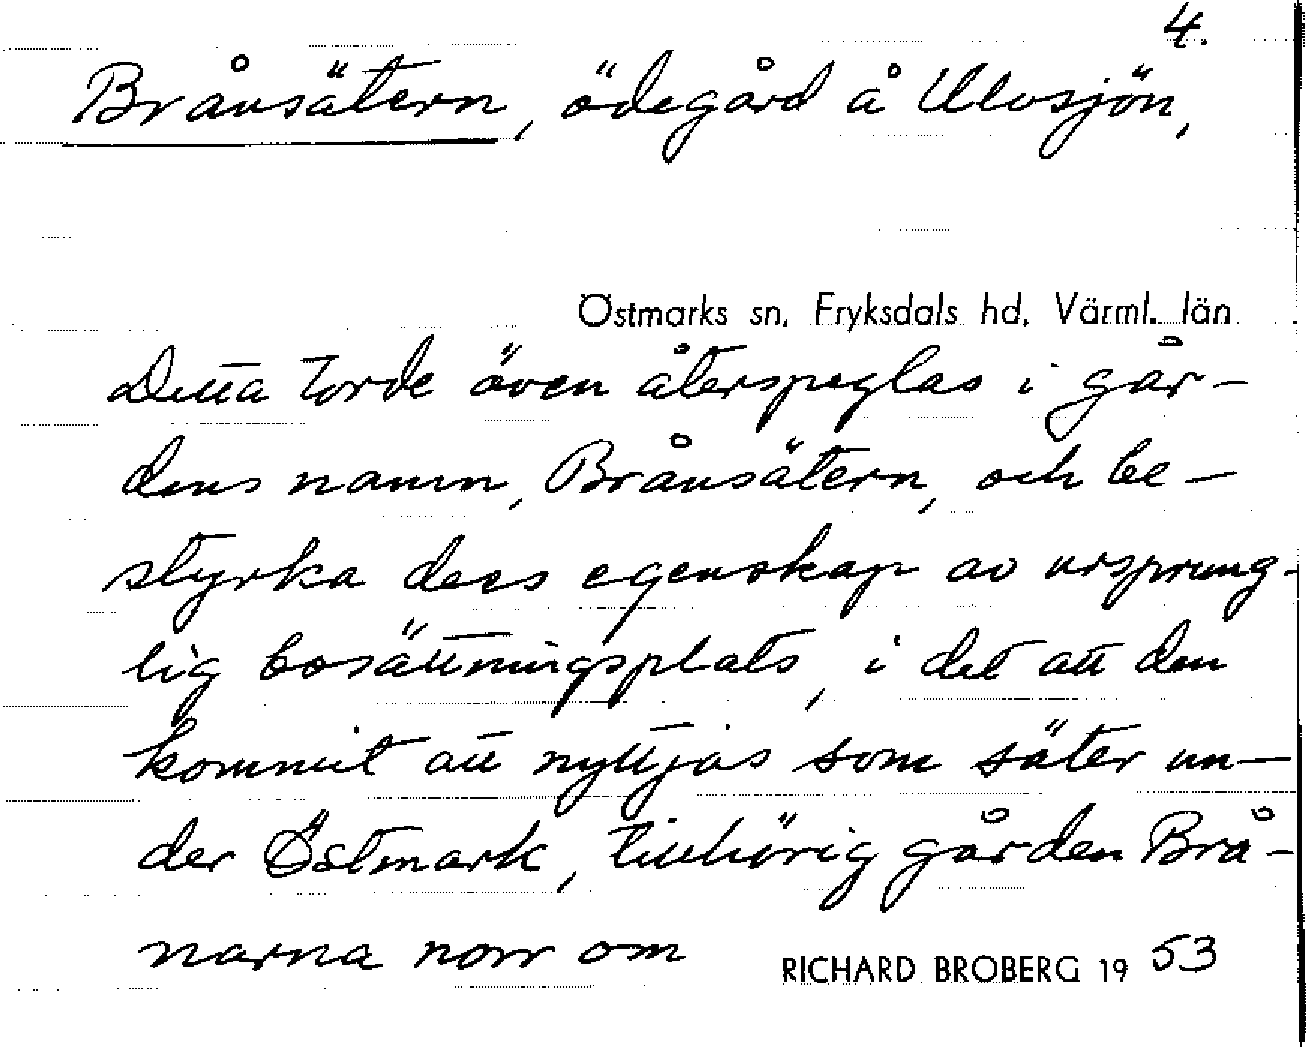 4.
Brånsätern, ödegård å Ulvsjön,
Östmarks sn, Fryksdals hd, Värml. län
Detta torde även återspeglas i går-
dens namn, Brånsätern, och be-
styrka dess egenskap av ursprung-
lig bosättningsplats, i det att den
kommit att nyttjas som säter un-
der Östmark, tillhörig gården Brå-
narna norr om
RICHARD BROBERG 1953